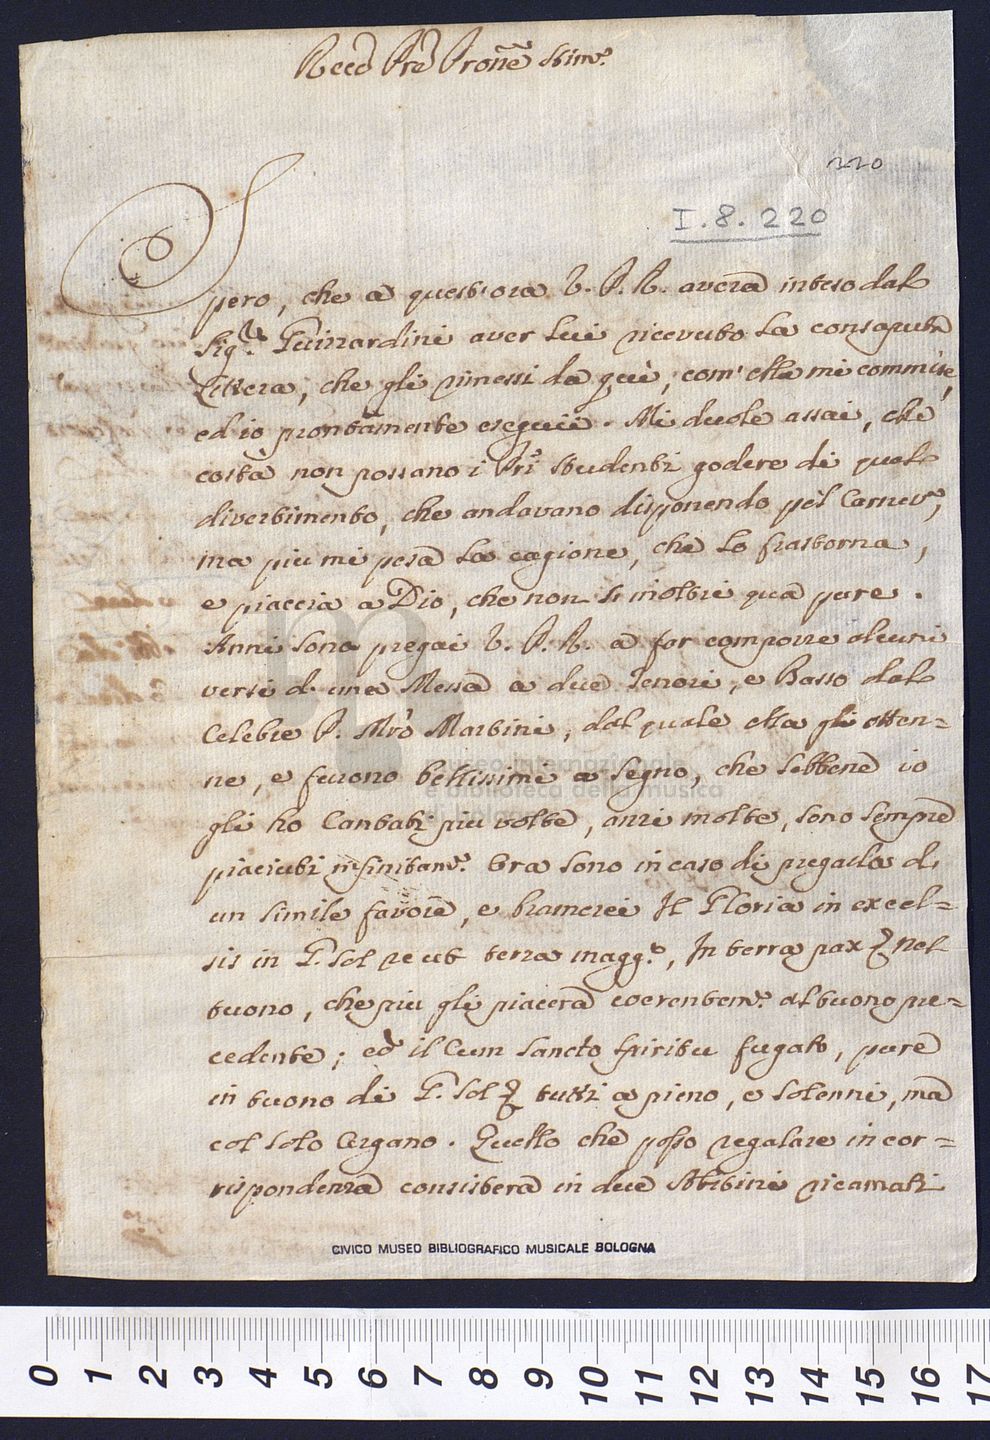 Rev:do Pre Prone Stim:o
220
I.8.220
Spero, che a quest'ora V. P. R. averà inteso dal
Sig.r Guizzardini aver lui ricevuto la consaputa
Lettera, che gli rimessi da quì, com' ella mi commise,
ed io prontamente eseguii. Mi duole assai, che
costà non possano i Pri Studenti godere di quel
divertimento, che andavano disponendo pel Carnev.e,
ma più mi pesa la cagione, che lo frastorna,
e piaccia a Dio, che non s' inoltri quà pure.
Anni sono pregai V. P. R. a far comporre alcuni
versi d. una Messa a due Tenori, e Basso dal
Celebre P. Mro Martini, dal quale ella gli otten=
ne, e furono bellissimi a segno, che sebbene io
gli ho Cantati più volte, anzi molte, sono sempre
piaciuti infinitam.e Ora sono in caso di pregarla di
un simile favore, e bramerei Il Gloria in excel=
sis in G. sol re ut terza magg.e, In terra pax nel
tuono, che più gli piacerà coerentem.e al tuono pre=
cedente; ed il Cum Sancto Spiritu fugato, pure
in tuono di G. sol tutti a pieno, e solenni, ma
col solo Organo. Quello che posso regalare in cor=
rispondenza consisterà in due Stivini ricamati
museo internazionale
e biblioteca della musica
di bologna
CIVICO MUSEO BIBLIOGRAFICO MUSICALE BOLOGNA
0 1 2 3 4 5 6 7 8 9 10 11 12 13 14 15 16 17